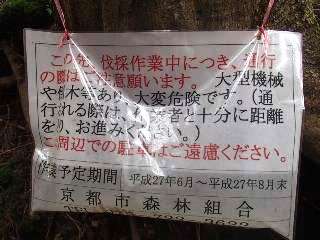 この先、伐採作業中につき、通行
の際はご注意願います。大型機械
や伐木等あり、大変危険です。(通
行される際は、作業者と十分に距離
をとり、お進みください。)
この周辺での駐車はご遠慮ください。
作業予定期間 平成27年6月〜平成27年8月末
京都市森林組合
TEL